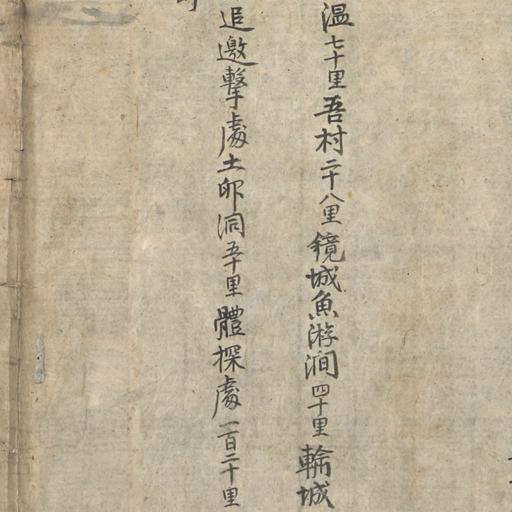 温七十里吾村二十八里鏡城魚游澗四十里輪城
追邀擊處土卯洞五十里體探處一百二十里